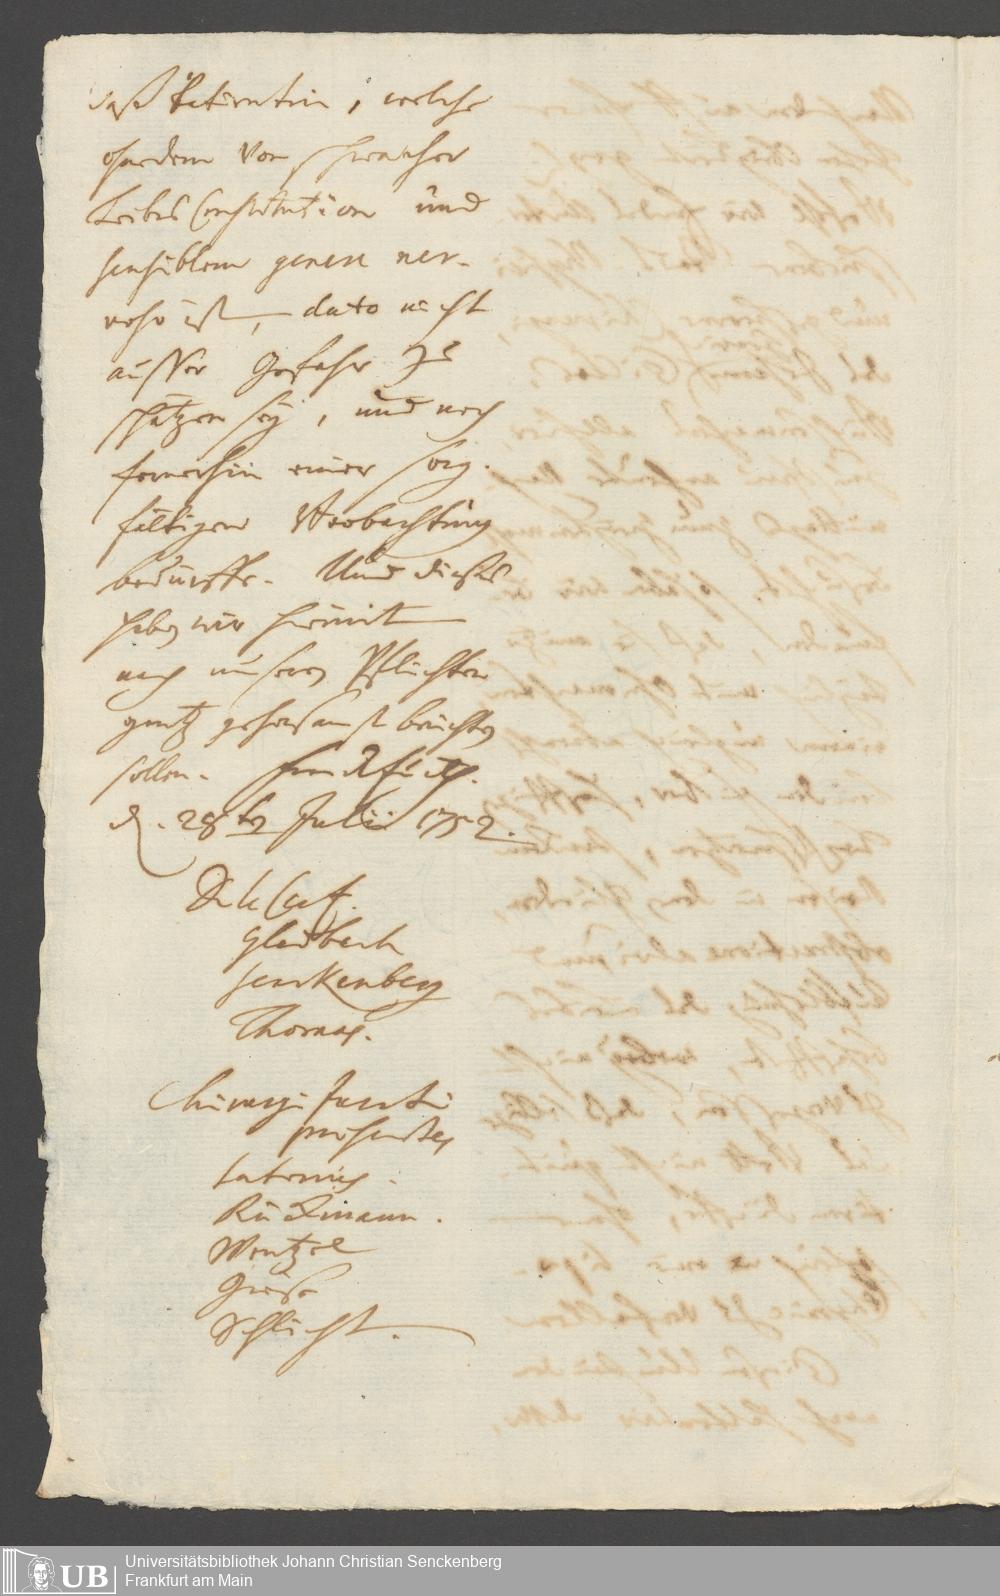 daß Patientin, welche
ohnedem von schwacher
Leibes Constitution und
sensiblem genere ner-
voso ist, dato nicht
ausser Gefahr zu
schätzen sey, und noch
fernerhin einer sorg-
fältigen Beobachtung
bedürffe. Und dießes
haben wir hiemit
nach unseren Pflichten
gantz gehorsamst berichten
sollen. Franckfurth.
d. 28ten Julii 1752.
Gladbach
Senckenberg
Thomas.
Chirurgi Jurati
praesentes
Rückmann.
Wentzel
Griese
Schlicht.
Universitätsbibliothek Johann Christian Senckenberg
Frankfurt am Main
UB